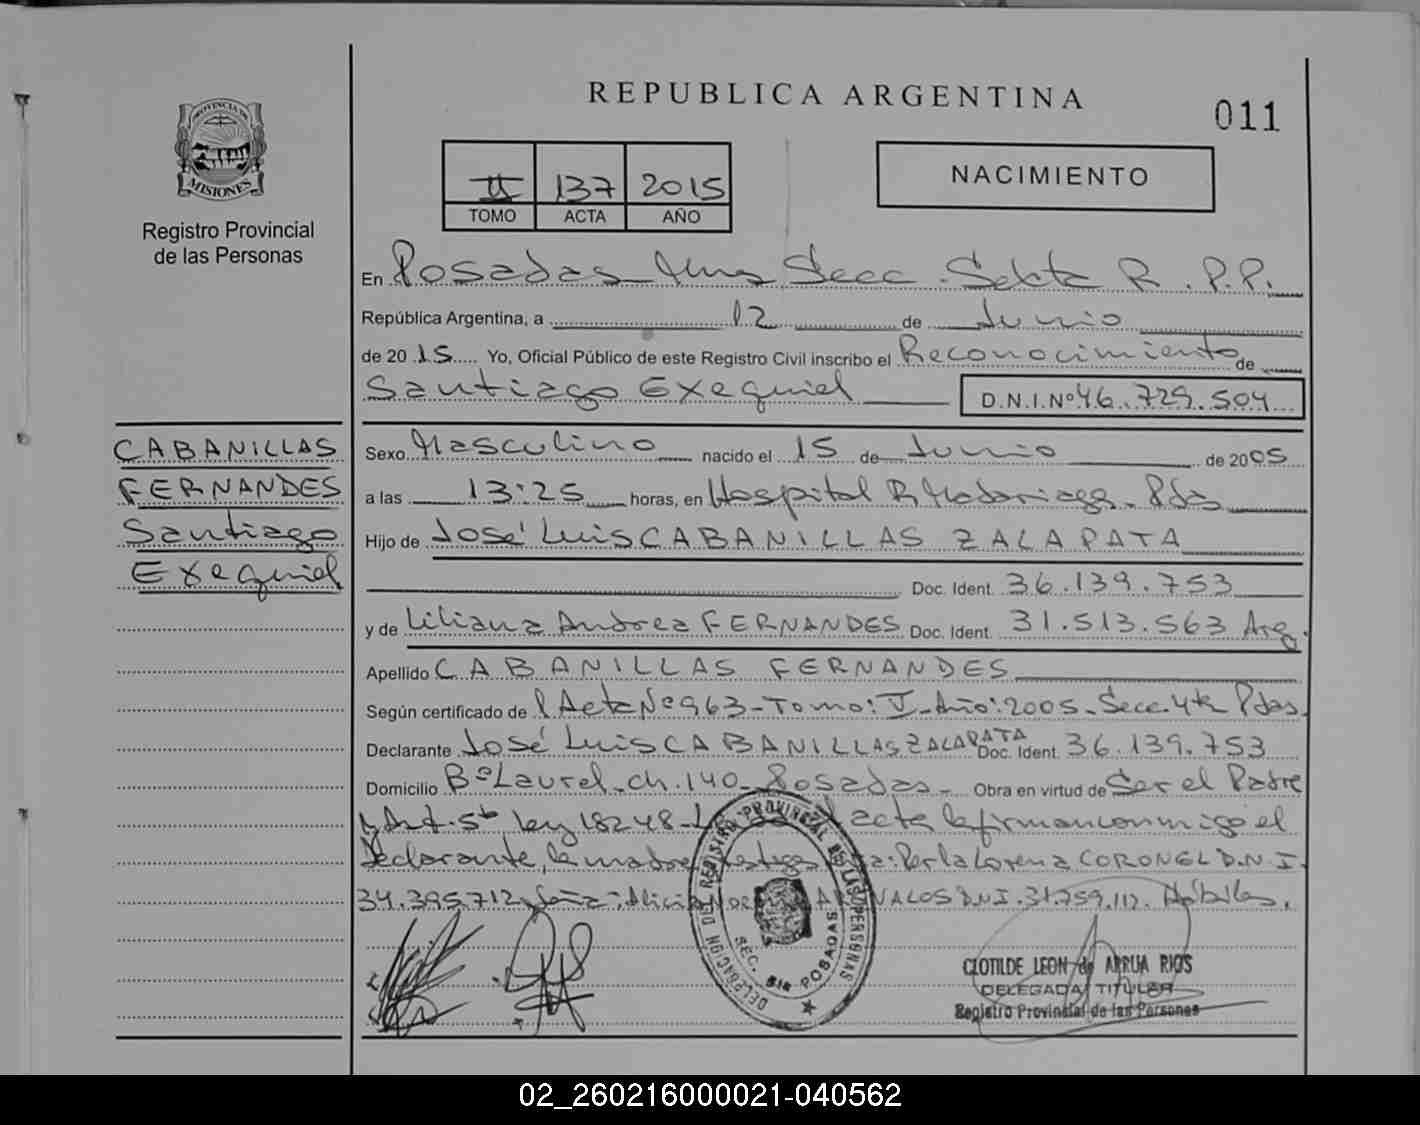 REPUBLICA ARGENTINA
011
PROVINCIA DE
MISIONES
Registro Provincial
de las Personas
II 137 2015
TOMO ACTA AÑO
NACIMIENTO
En Posadas Mnes Secc. Sexta R. P. P.
República Argentina, a 12 de Junio
de 2015 Yo, Oficial Público de este Registro Civil inscribo el Reconocimiento de
Santiago Exequiel D.N.I.Nº 46.729.504
CABANILLAS
FERNANDES
Santiago
Exequiel
Sexo Masculino nacido el 15 de Junio de 2005
a las 13:25 horas, en Hospital R. Madariaga. Pdas
Hijo de José Luis CABANILLAS ZALAPATA
Doc. Ident. 36.139.753
y de Liliana Andrea FERNANDES Doc. Ident. 31.513.563 Arg.
Apellido CABANILLAS FERNANDES
Según certificado de Acta Nº 963-Tomo: I-Año: 2005-Secc. 4ta Pdas.
Declarante José Luis CABANILLAS ZALAPATA Doc. Ident. 36.139.753
Domicilio Bº Laurel-ch. 140-Posadas- Obra en virtud de Ser el Padre
y Art. 5to, ley 18248- acta la firman conmigo el
Declarante, la madre, testigos Perla Lorena CORONEL D.N.I.
34.395.712 y Alicia D.N.I. 31.759.112. Hábiles.
DELEGACIÓN DEL REGISTRO PROVINCIAL DE LAS PERSONAS
SEC. 6ta POSADAS
CLOTILDE LEON de ARRUA RIOS
DELEGADA TITULAR
Registro Provincial de las Personas
02_260216000021-040562